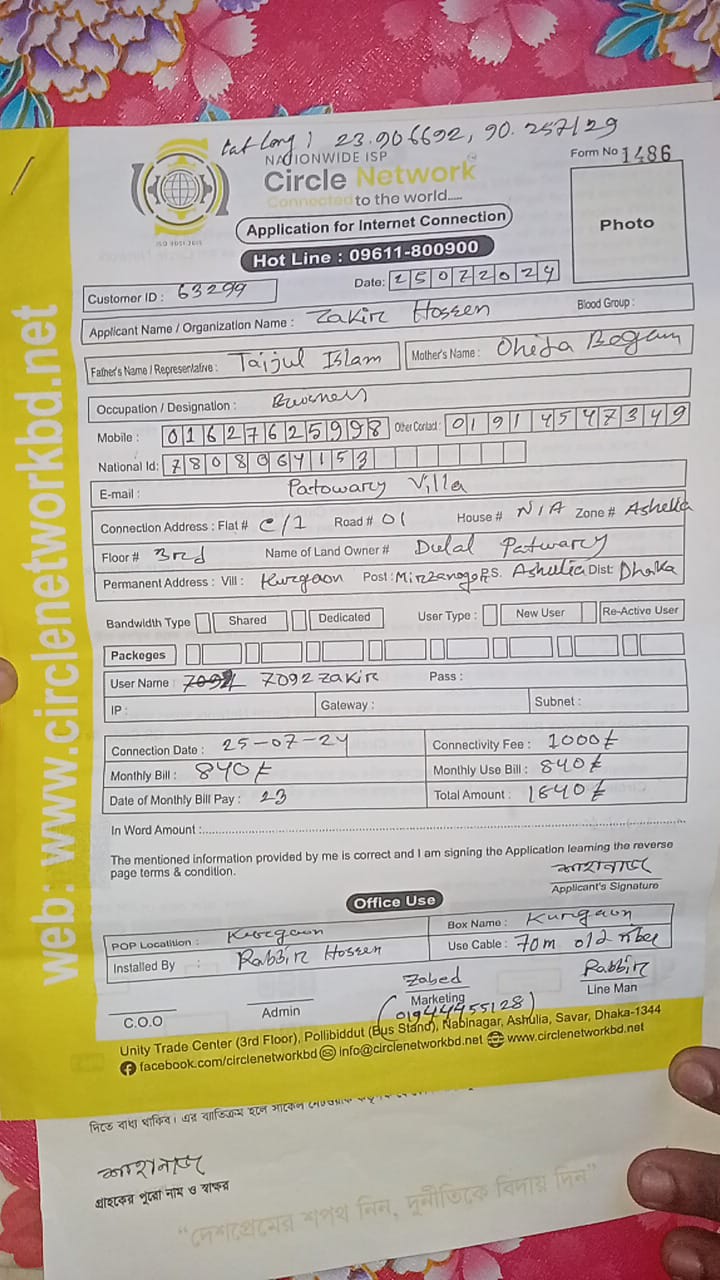 Lat Long : 23.906692, 90.257129
NATIONWIDE ISP
Circle Network
Connected to the world.....
ISO 9001:2015
Form No 1486
Application for Internet Connection
Photo
Hot Line : 09611-800900
Customer ID : 63299
Date: 25072024
Applicant Name / Organization Name : Zakir Hossen
Blood Group :
Father's Name / Representative : Taijul Islam
Mother's Name : Oheda Begum
Occupation / Designation :
Mobile : 01627625998 Other Contact : 01914547349
National Id: 7808964153
E-mail : Patowary Villa
Connection Address : Flat # C/1 Road # 01 House # N/A Zone # Ashulia
Floor # 3rd Name of Land Owner # Dulal Patwary
Permanent Address : Vill : Kurgaon Post : Mirzanagor P.S. Ashulia Dist: Dhaka
Bandwidth Type Shared Dedicated User Type : New User Re-Active User
Packeges
User Name : 7092 Zakir Pass :
IP : Gateway : Subnet :
Connection Date : 25-07-24 Connectivity Fee : 1000৳
Monthly Bill : 840৳ Monthly Use Bill : 840৳
Date of Monthly Bill Pay : 23 Total Amount : 1840৳
In Word Amount :
The mentioned information provided by me is correct and I am signing the Application learning the reverse
page terms & condition.
শাহনাজ
Applicant's Signature
Office Use
POP Localtition : Kurgaon Box Name : Kurgaon
Installed By : Rabbir Hossen Use Cable : 70m old
Zobed Rabbir
C.O.O Admin Marketing Line Man
(01944455128)
Unity Trade Center (3rd Floor), Pollibiddut (Bus Stand), Nabinagar, Ashulia, Savar, Dhaka-1344
facebook.com/circlenetworkbd info@circlenetworkbd.net www.circlenetworkbd.net
web: www.circlenetworkbd.net
দিতে বাধ্য থাকিব। এর ব্যতিক্রম হলে সার্কেল
শাহনাজ
গ্রাহকের পুরো নাম ও স্বাক্ষর
“দেশপ্রেমের শপথ নিন, দুর্নীতিকে বিদায় দিন”